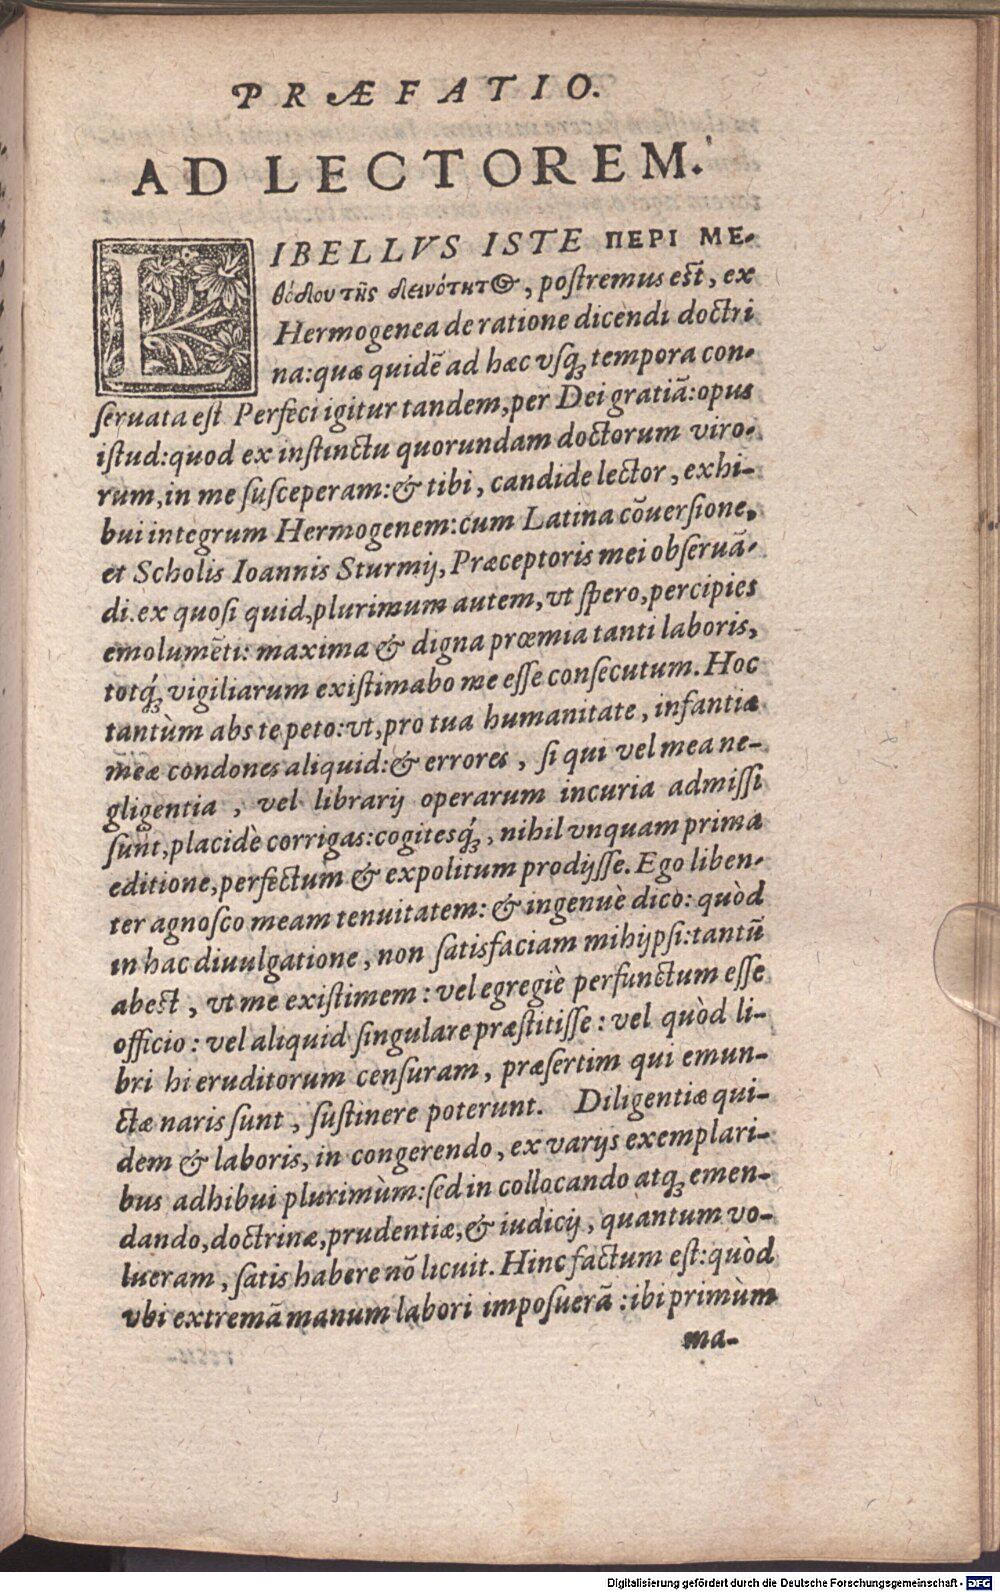 PRÆFATIO.
AD LECTOREM.
LIBELLVS ISTE ΠΕΡΙ ΜΕ-
θόδου τῆς δεινότητος, postremus est, ex
Hermogenea de ratione dicendi doctri
na: quæ quidẽ ad hæc vsq; tempora con-
seruata est Perfeci igitur tandem, per Dei gratiã: opus
istud: quod ex instinctu quorundam doctorum viro-
rum, in me susceperam: & tibi, candide lector, exhi-
bui integrum Hermogenem: cum Latina cõuersione,
et Scholis Ioannis Sturmij, Præceptoris mei obseruã-
di. ex quo si quid, plurimum autem, vt spero, percipies
emolumẽti: maxima & digna prœmia tanti laboris,
totq́; vigiliarum existimabo me esse consecutum. Hoc
tantùm abs te peto: vt, pro tua humanitate, infantiæ
meæ condones aliquid: & errores, si qui vel mea ne-
gligentia, vel librarij operarum incuria admissi
sunt, placidè corrigas: cogitesq́;, nihil vnquam prima
editione, perfectum & expolitum prodijsse. Ego liben-
ter agnosco meam tenuitatem: & ingenuè dico: quòd
in hac diuulgatione, non satisfaciam mihijpsi: tantũ
abest, vt me existimem: vel egregiè perfunctum esse
officio: vel aliquid singulare præstitisse: vel quòd li-
bri hi eruditorum censuram, præsertim qui emun-
ctæ naris sunt, sustinere poterunt. Diligentiæ qui-
dem & laboris, in congerendo, ex varijs exemplari-
bus adhibui plurimùm: sed in collocando atq; emen-
dando, doctrinæ, prudentiæ, & iudicij, quantum vo-
lueram, satis habere nõ licuit. Hinc factum est: quòd
vbi extremã manum labori imposuerã: ibi primùm
ma-
Digitalisierung gefördert durch die Deutsche Forschungsgemeinschaft - DFG